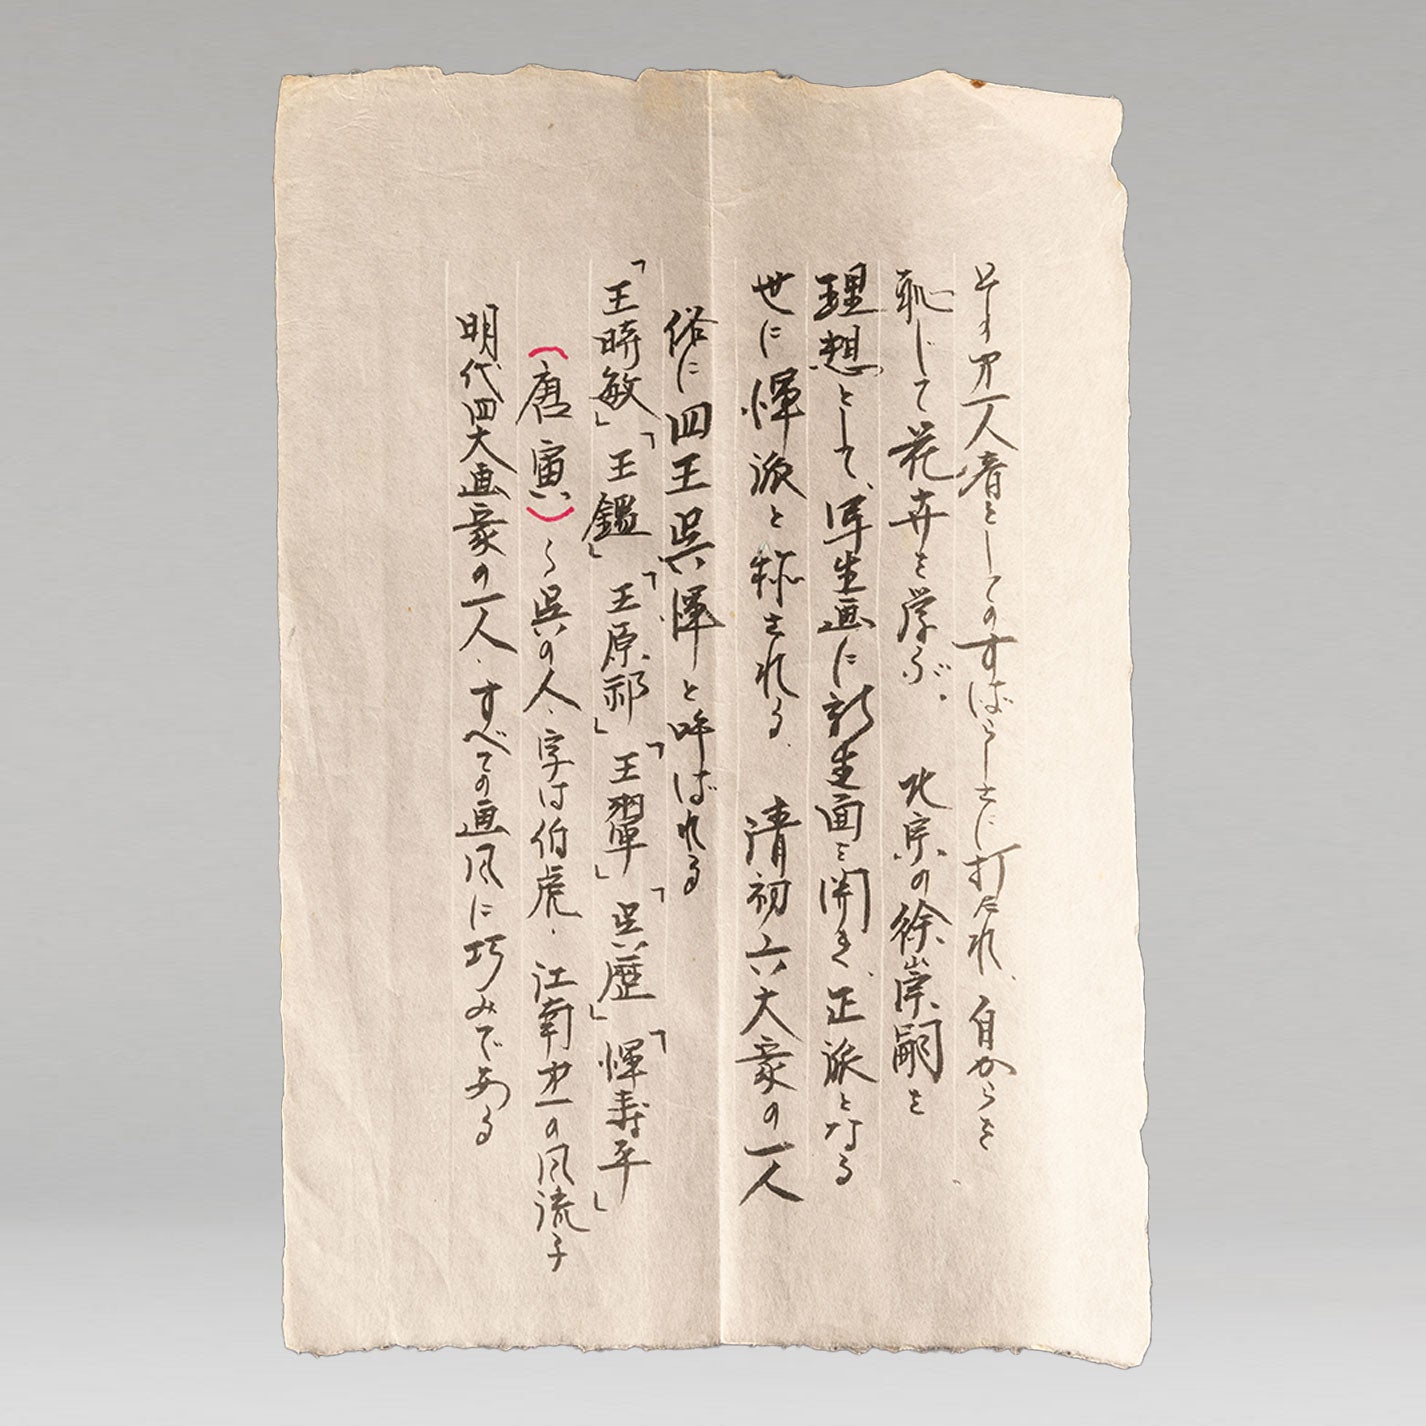 才一人者としてのすばらしさに打たれ、自からを
恥じて花卉を学ぶ。 北宗の徐崇嗣を
理想として、写生画に新生面を開き、正派となる
世に惲派と称される、 清初六大家の一人
俗に四王呉惲と呼ばれる
「王時敏」「王鑑」「王原祁」「王翬」「呉歴」「惲寿平」
(唐寅)〜呉の人、字は伯虎、江南才一の風流子
明代四大画家の一人、すべての画風に巧みである